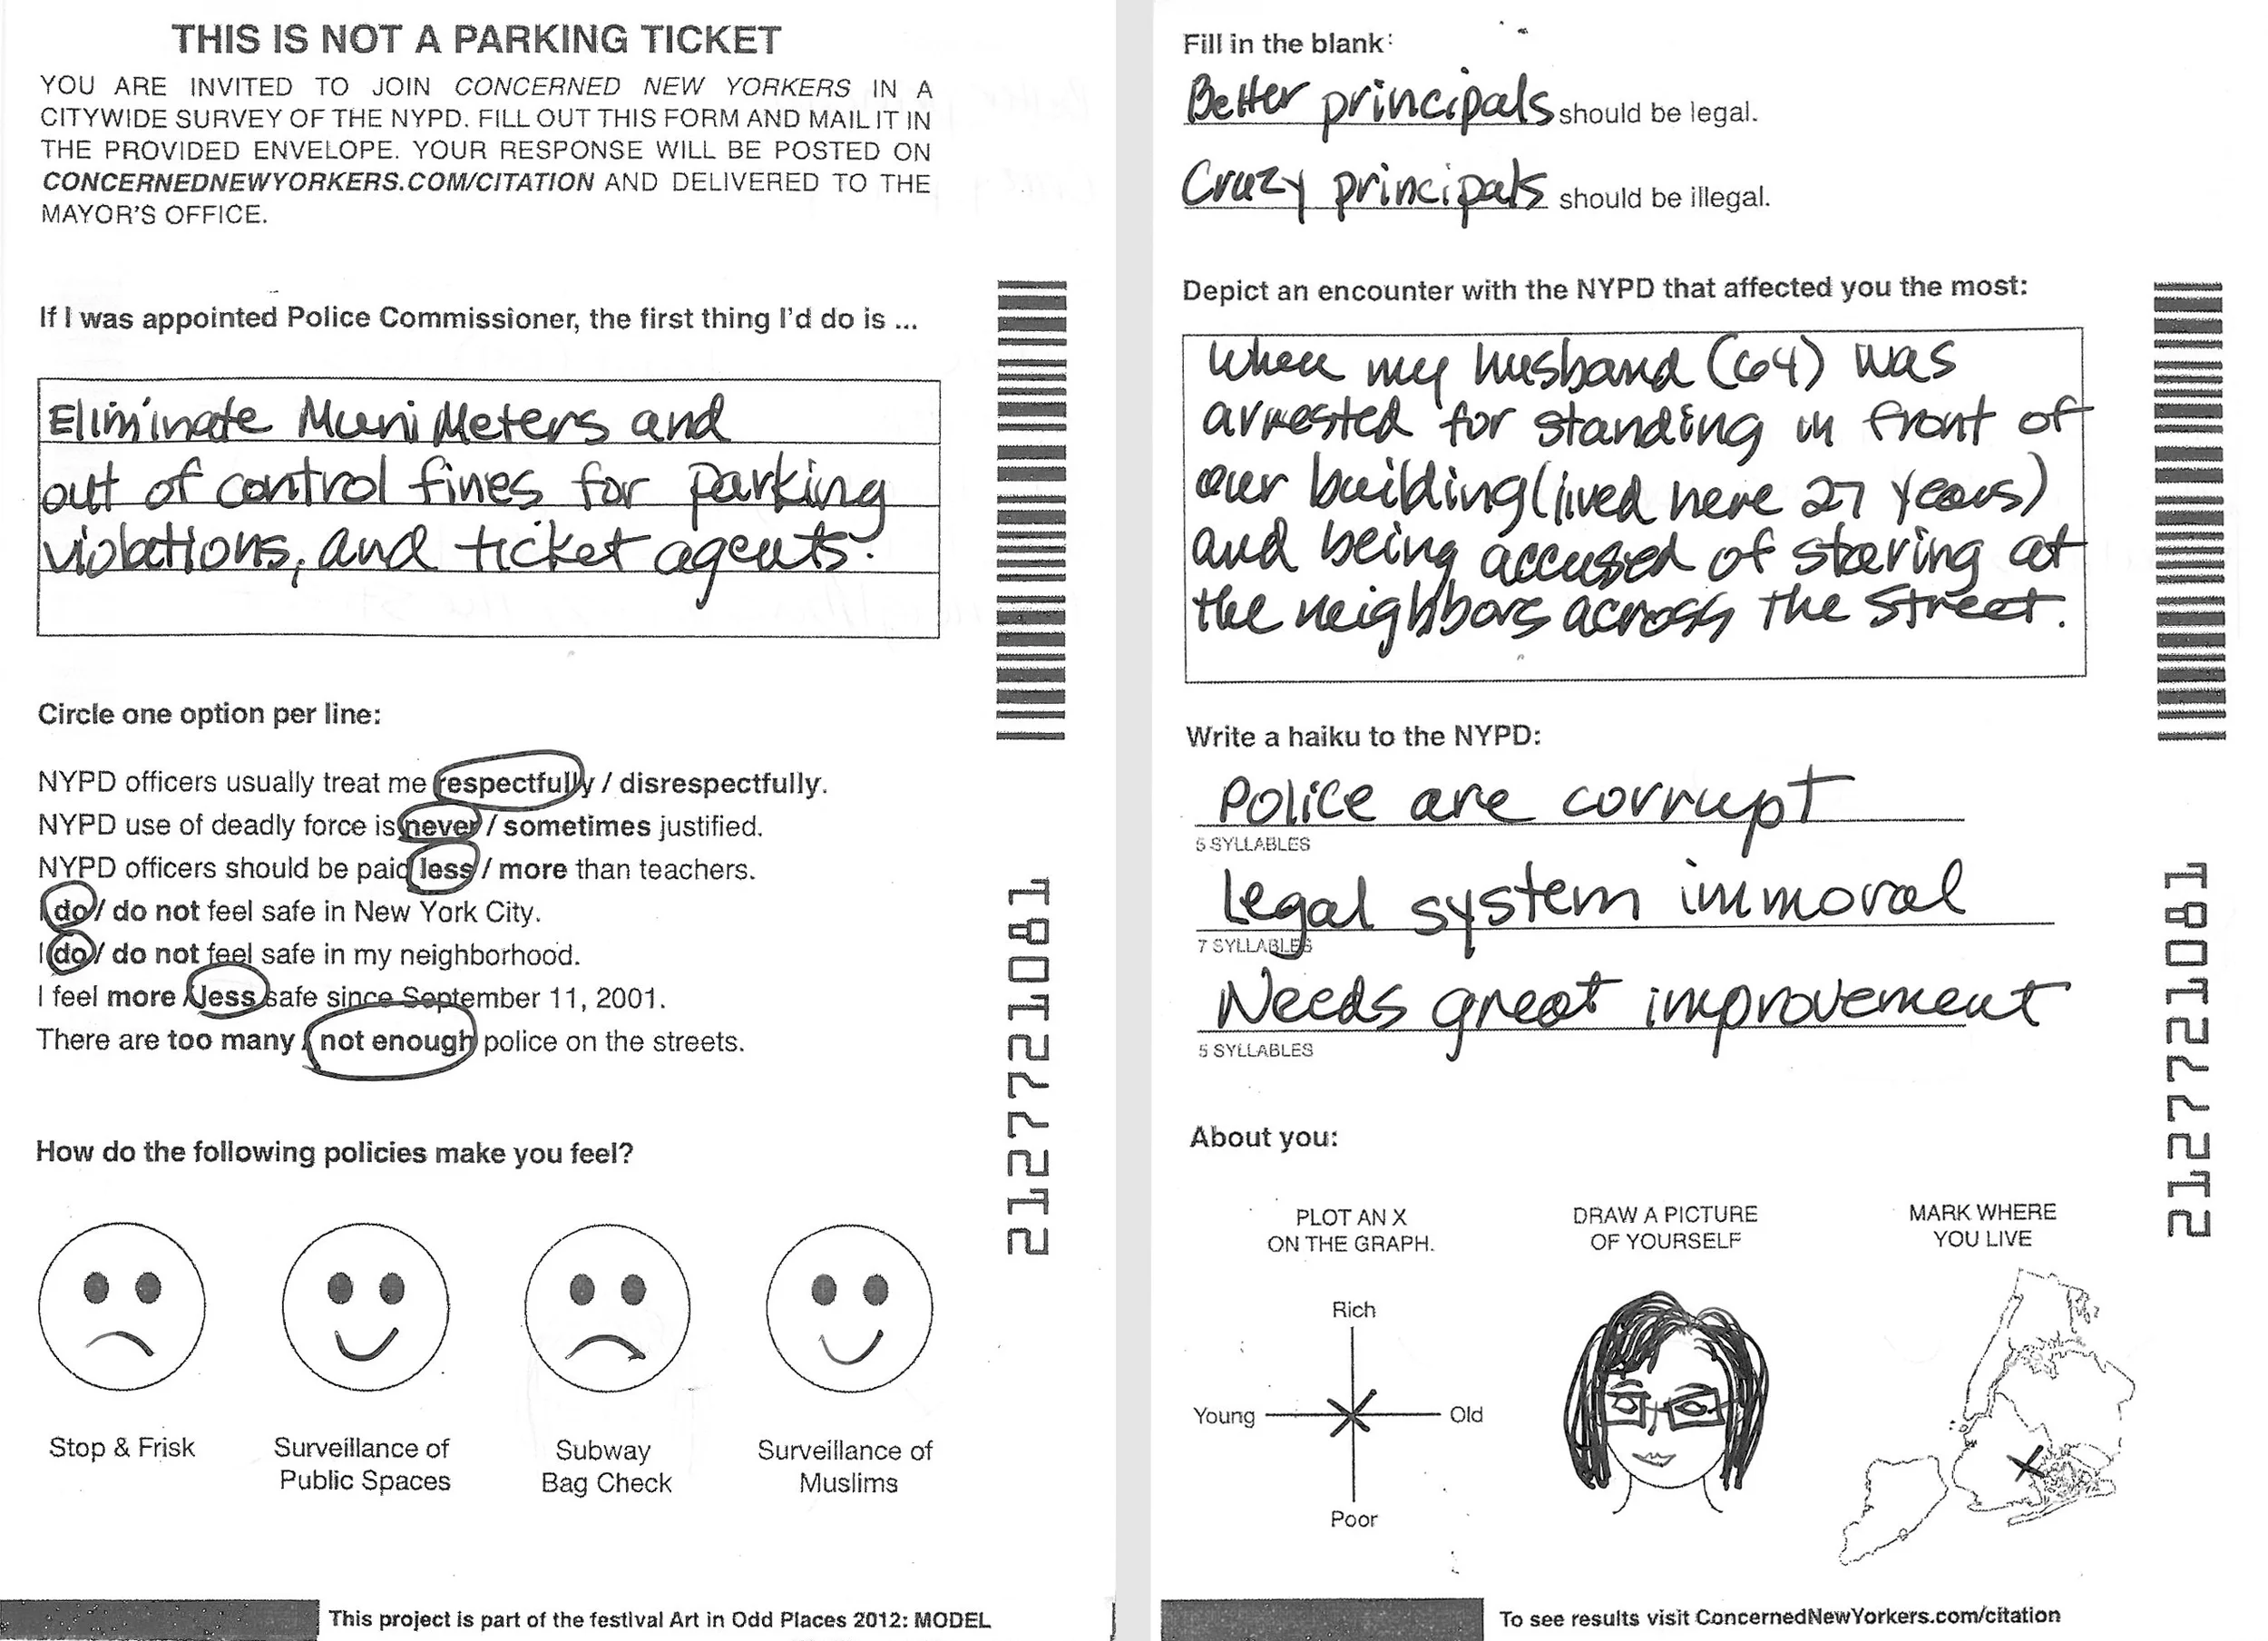 THIS IS NOT A PARKING TICKET
YOU ARE INVITED TO JOIN CONCERNED NEW YORKERS IN A
CITYWIDE SURVEY OF THE NYPD. FILL OUT THIS FORM AND MAIL IT IN
THE PROVIDED ENVELOPE. YOUR RESPONSE WILL BE POSTED ON
CONCERNEDNEWYORKERS.COM/CITATION AND DELIVERED TO THE
MAYOR'S OFFICE.
If I was appointed Police Commissioner, the first thing I'd do is ...
Eliminate Muni Meters and
out of control fines for parking
violations, and ticket agents.
Circle one option per line:
NYPD officers usually treat me respectfully / disrespectfully.
NYPD use of deadly force is never / sometimes justified.
NYPD officers should be paid less / more than teachers.
I do / do not feel safe in New York City.
I do / do not feel safe in my neighborhood.
I feel more / less safe since September 11, 2001.
There are too many / not enough police on the streets.
How do the following policies make you feel?
Stop & Frisk
Surveillance of
Public Spaces
Subway
Bag Check
Surveillance of
Muslims
21277210181
This project is part of the festival Art in Odd Places 2012: MODEL
Fill in the blank:
Better principals should be legal.
Crazy principals should be illegal.
Depict an encounter with the NYPD that affected you the most:
When my husband (64) was
arrested for standing in front of
our building (lived here 27 years)
and being accused of staring at
the neighbors across the street.
Write a haiku to the NYPD:
Police are corrupt
5 SYLLABLES
Legal system immoral
7 SYLLABLES
Needs great improvement
5 SYLLABLES
About you:
PLOT AN X
ON THE GRAPH.
Rich
Young
Old
Poor
DRAW A PICTURE
OF YOURSELF
MARK WHERE
YOU LIVE
21277210181
To see results visit ConcernedNewYorkers.com/citation